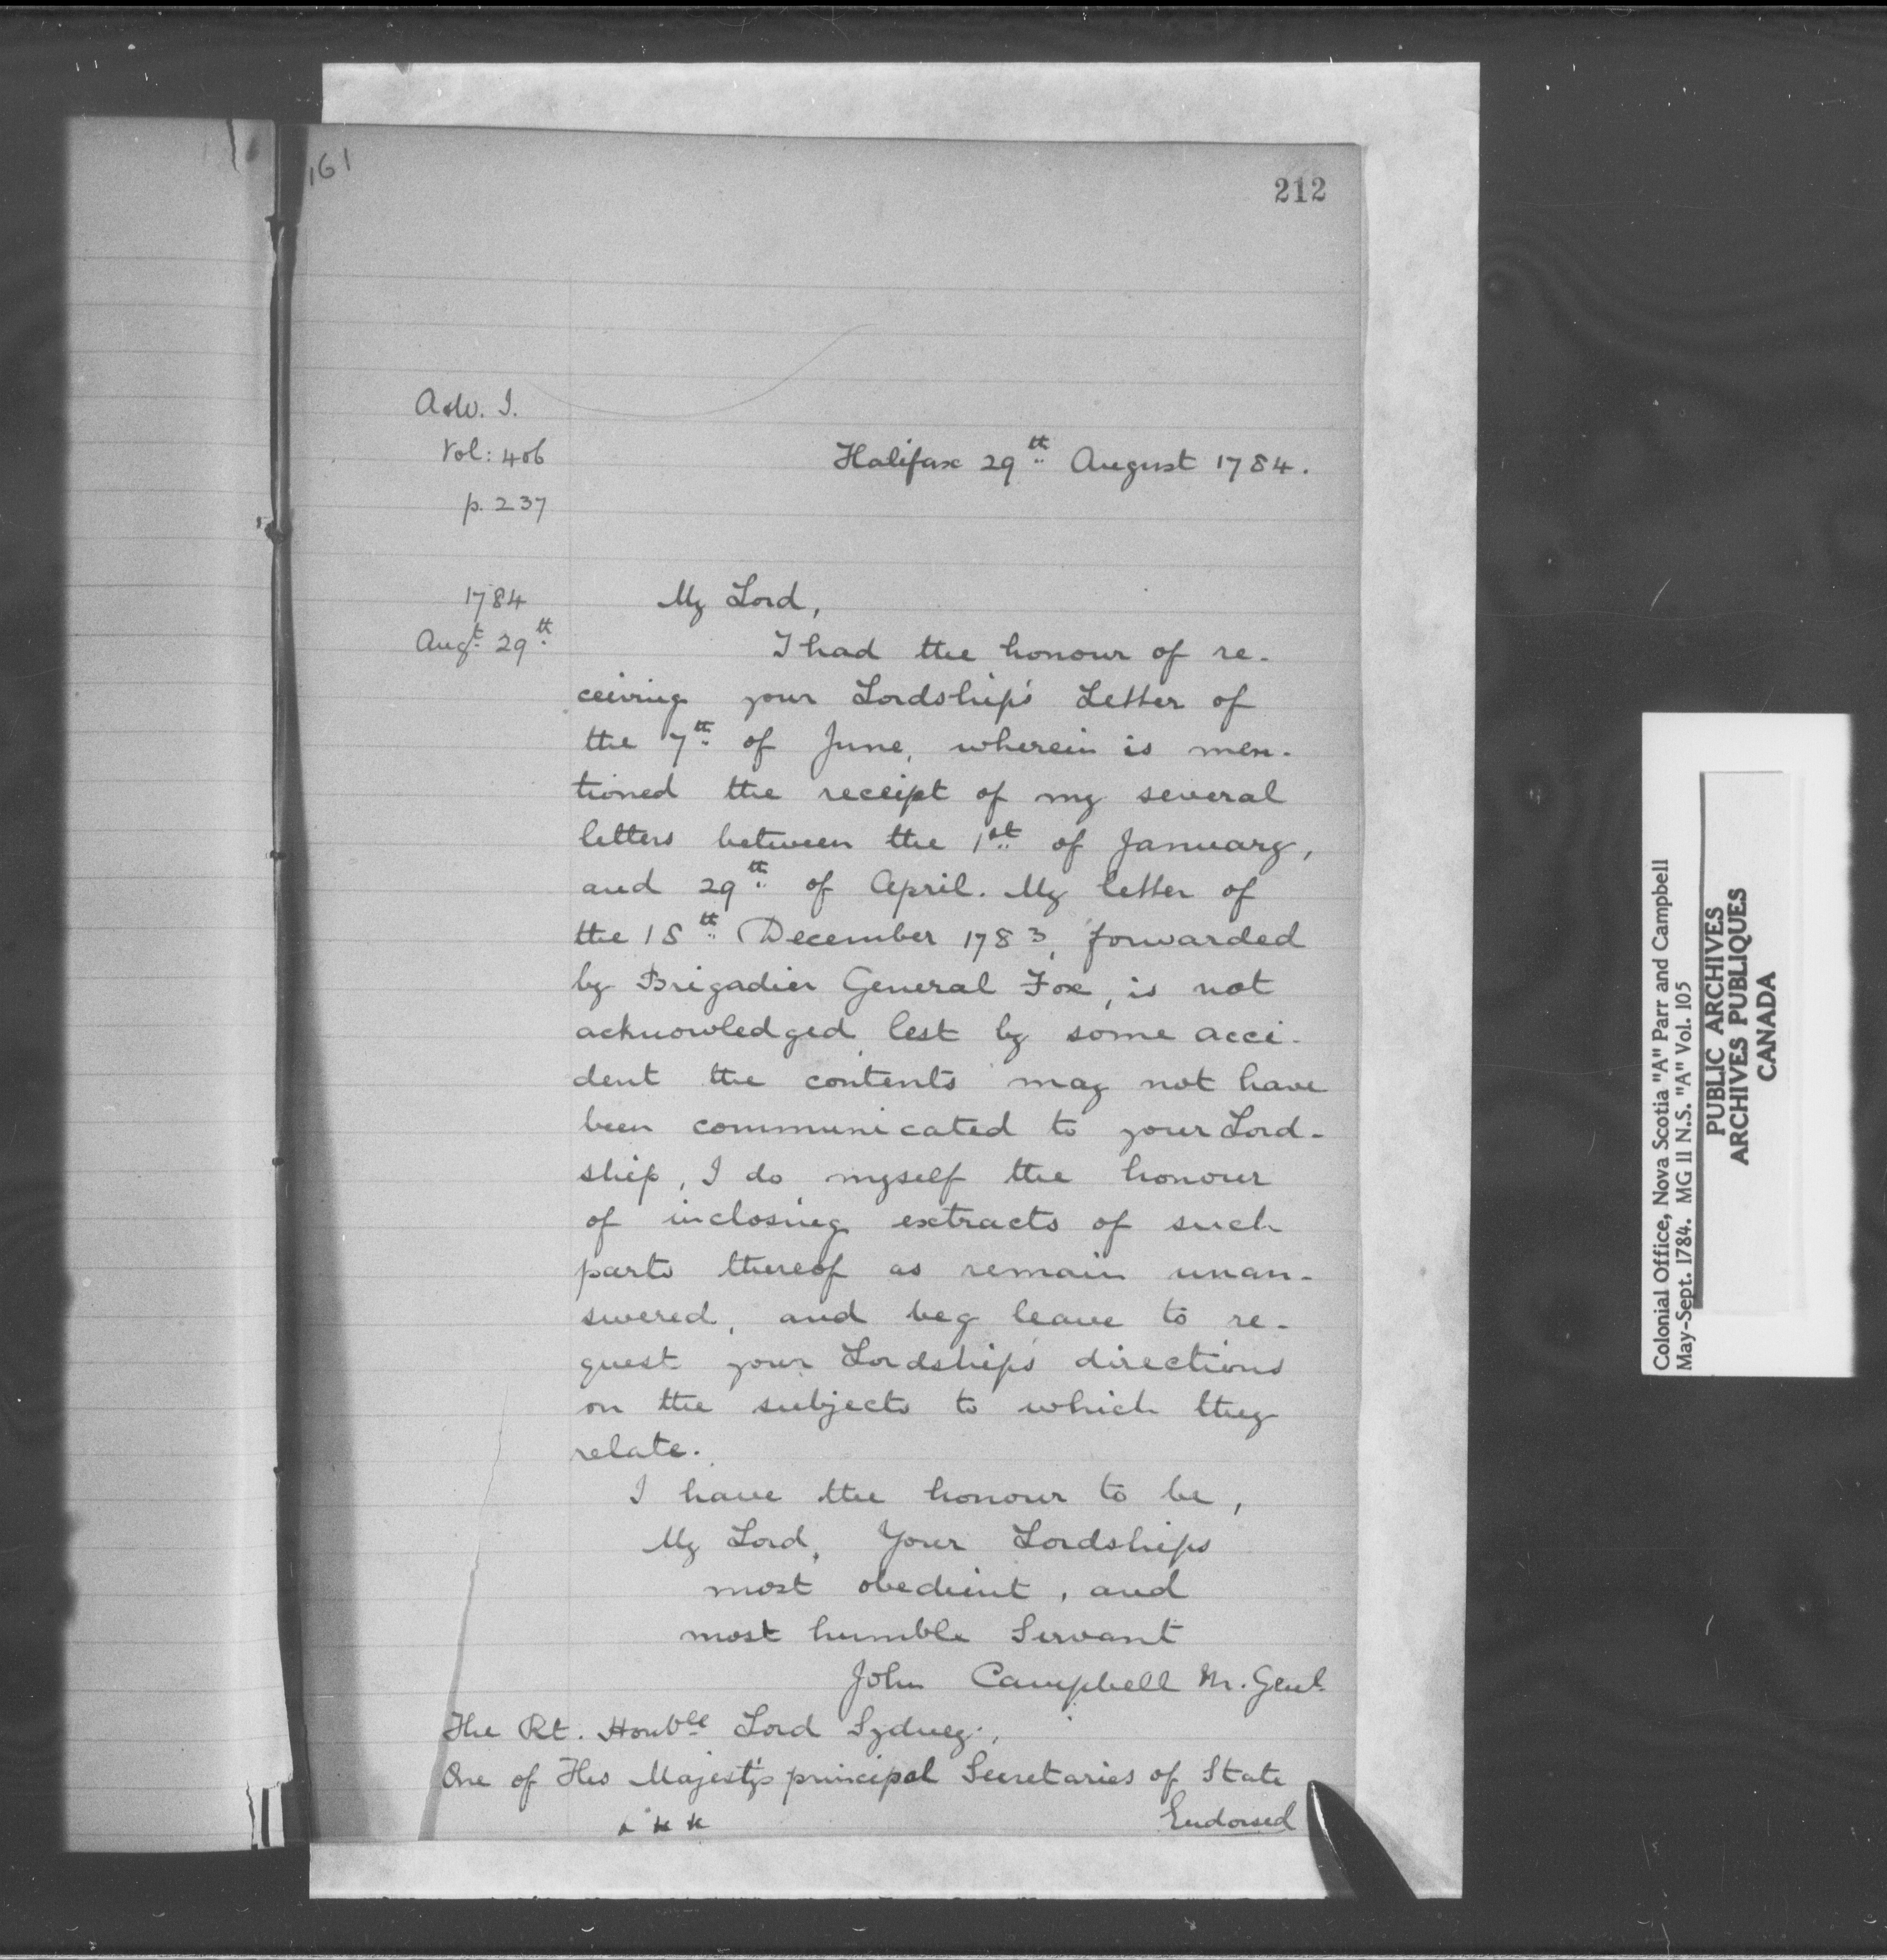 161
212
A & W. I.
Vol: 406
p. 237
Halifax 29th August 1784.
1784
Augt 29th
My Lord,
I had the honour of re-
ceiving your Lordship's Letter of
the 7th of June, wherein is men-
tioned the receipt of my several
letters between the 1st of January,
and 29th of April. My letter of
the 15th December 1783, forwarded
by Brigadier General Fox, is not
acknowledged, lest by some acci-
dent the contents may not have
been communicated to your Lord-
ship, I do myself the honour
of inclosing extracts of such
parts thereof as remain unan-
swered, and beg leave to re-
quest your Lordship's directions
on the subjects to which they
relate.
I have the honour to be,
My Lord, Your Lordships
most obedient, and
most humble Servant
John Campbell M. Genl.
The Rt. Honble Lord Sydney,
One of His Majesty's principal Secretaries of State
Endorsed
Colonial Office, Nova Scotia "A" Parr and Campbell
May-Sept. 1784. MG 11 N.S. "A" Vol. 105
PUBLIC ARCHIVES
ARCHIVES PUBLIQUES
CANADA